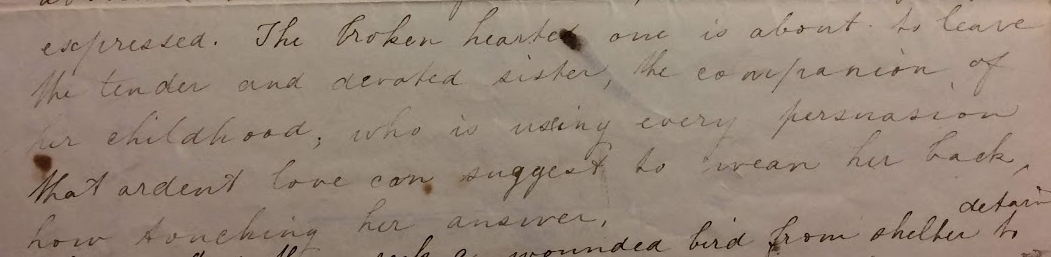 expressed. The broken hearted one is about to leave
the tender and devoted sister, the companion of
her childhood; who is using every persuasion
that ardent love can suggest to wean her back,
how touching her answer,
detain
a wounded bird from shelter to